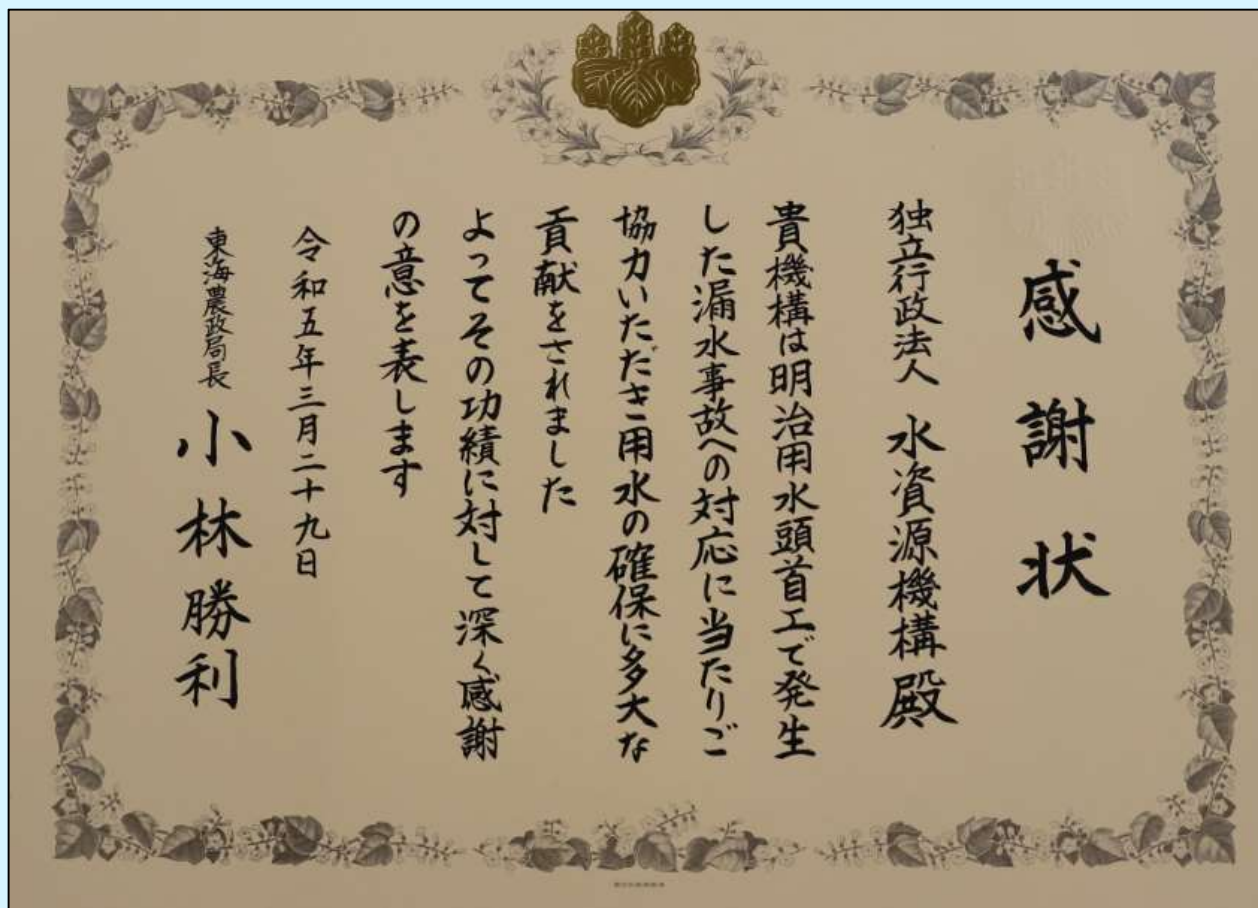 感謝状
独立行政法人 水資源機構殿
貴機構は明治用水頭首工で発生
した漏水事故への対応に当たりご
協力いただき用水の確保に多大な
貢献をされました
よってその功績に対して深く感謝
の意を表します
令和五年三月二十九日
東海農政局長 小林勝利